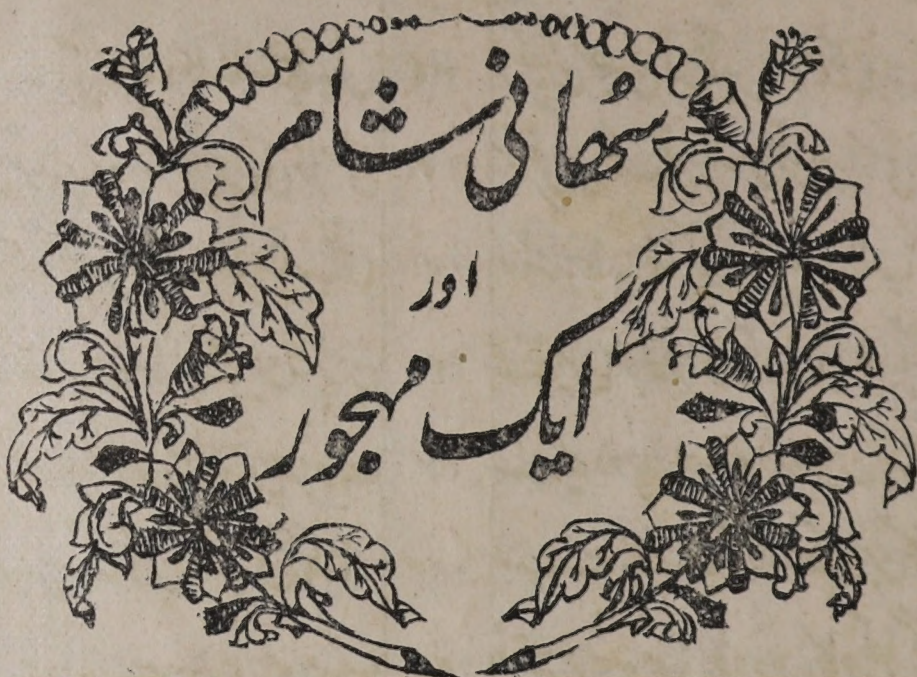 سُھانی شام
اور
ایک مہجور